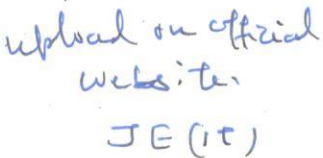 upload on official
website.
JE (IT)